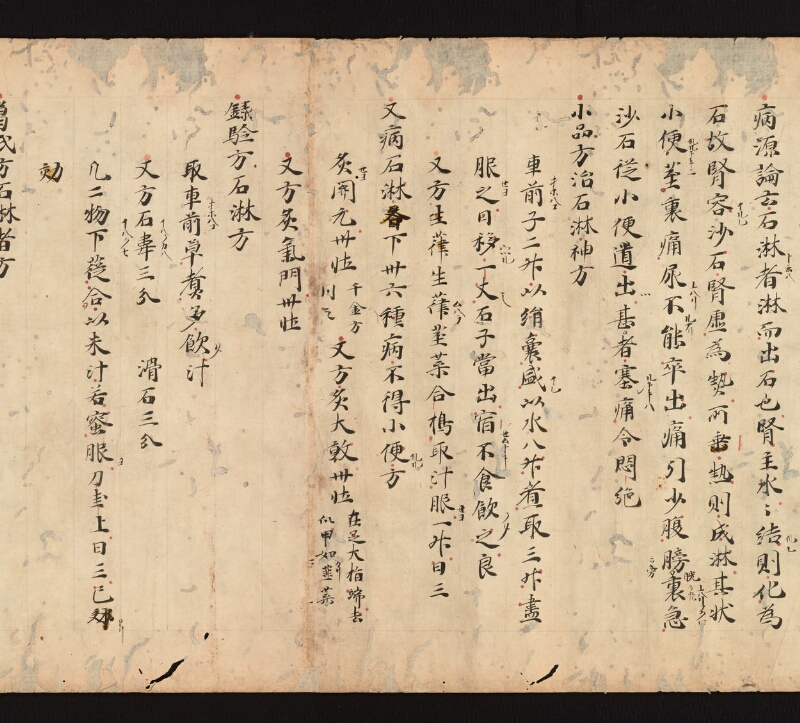 病源論云石淋者淋而出石也腎主水〻結則化為
石故腎容沙石腎虚為熱所乗熱則成淋其状
小便茎裏痛尿不能卒出痛引少腹膀裏急
沙石従小便道出甚者塞痛令悶絶
小品方治石淋神方
車前子二升以絹嚢盛以水八升煮取三升盡
服之日移一丈石子當出宿不食飲之良
又方生葎生葎茎葉合檮取汁服一升日三
又病石淋下卅六種病不得小便方
灸開元卅壮 千金方同之 又方灸大敦卅壮 在足大指歸去似甲如韮葉
又方灸氣門卅壮
録驗方石淋方
取車前草煮多飲汁
又方石韋三分 滑石三分
凡二物下簁合以米汁若蜜服刀圭上日三已
効
葛氏方石淋者方